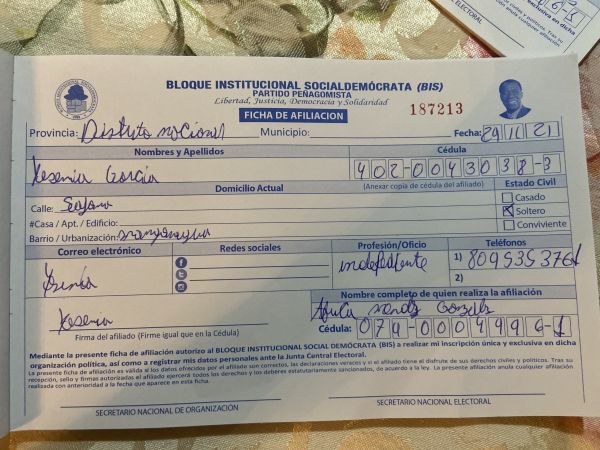 BLOQUE INSTITUCIONAL SOCIALDEMÓCRATA (BIS)
PARTIDO PEÑAGOMISTA
Libertad, Justicia, Democracia y Solidaridad
FICHA DE AFILIACION
187213
Provincia: Distrito nacional Municipio: Fecha: 29/11/21
Nombres y Apellidos Cédula
Yesenia García 402-0043038-3
Domicilio Actual (Anexar copia de cédula del afiliado) Estado Civil
Calle:
Casado
#Casa / Apt. / Edificio:
Soltero
Barrio / Urbanización:
Conviviente
Correo electrónico Redes sociales Profesión/Oficio Teléfonos
independiente 1)
2)
Nombre completo de quien realiza la afiliación
Yesenia
Firma del afiliado (Firme igual que en la Cédula) Cédula:
Mediante la presente ficha de afiliación autorizo al BLOQUE INSTITUCIONAL SOCIAL DEMÓCRATA (BIS) a realizar mi inscripción única y exclusiva en dicha
organización política, así como a registrar mis datos personales ante la Junta Central Electoral.
La presente ficha de afiliación es válida si los datos ofrecidos por el afiliado son correctos, las declaraciones veraces y si el afiliado tiene el disfrute de sus derechos civiles y políticos. Tras su
recepción, sello y firmas autorizadas el afiliado ejercerá todos los derechos y los deberes estatutariamente sancionados, de acuerdo a la ley. La presente afiliación anula cualquier afiliación
realizada con anterioridad a la fecha que aparece en esta ficha.
SECRETARIO NACIONAL DE ORGANIZACIÓN SECRETARIO NACIONAL ELECTORAL